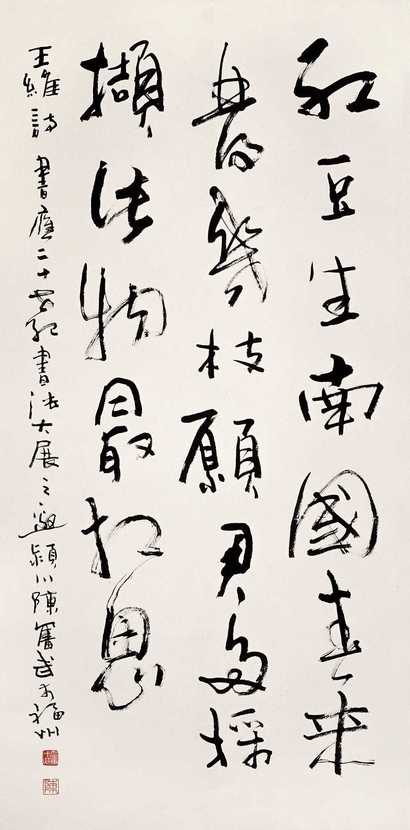 紅豆生南國春來
發幾枝願君多採
擷此物最相思
王維詩 書應二十世紀書法大展之邀 潁川陳奮武於福州
陳